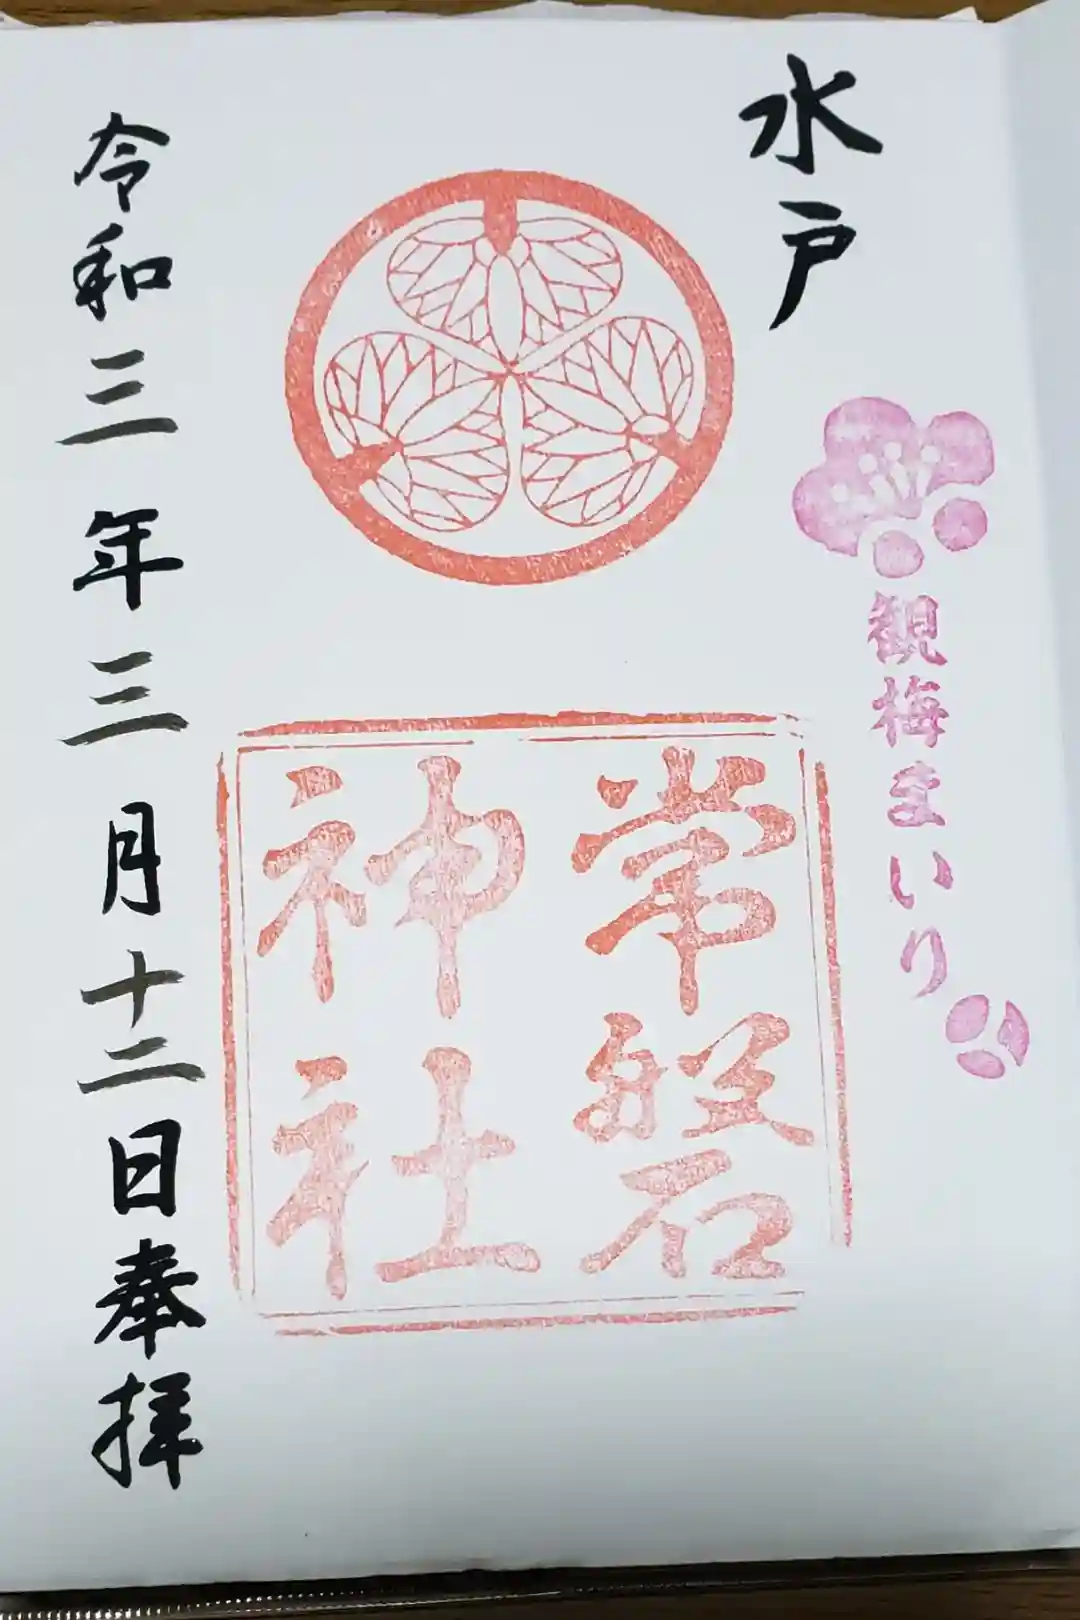 水戸
観梅まいり
常磐
神社
令和三年三月十二日奉拝